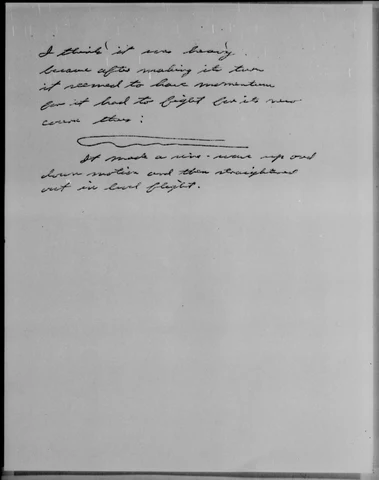 I think it was heavy
because after making its turn
it seemed to have momentum
for it had to fight for its new
course thus:
It made a sine-wave up and
down motion and then straightened
out in level flight.